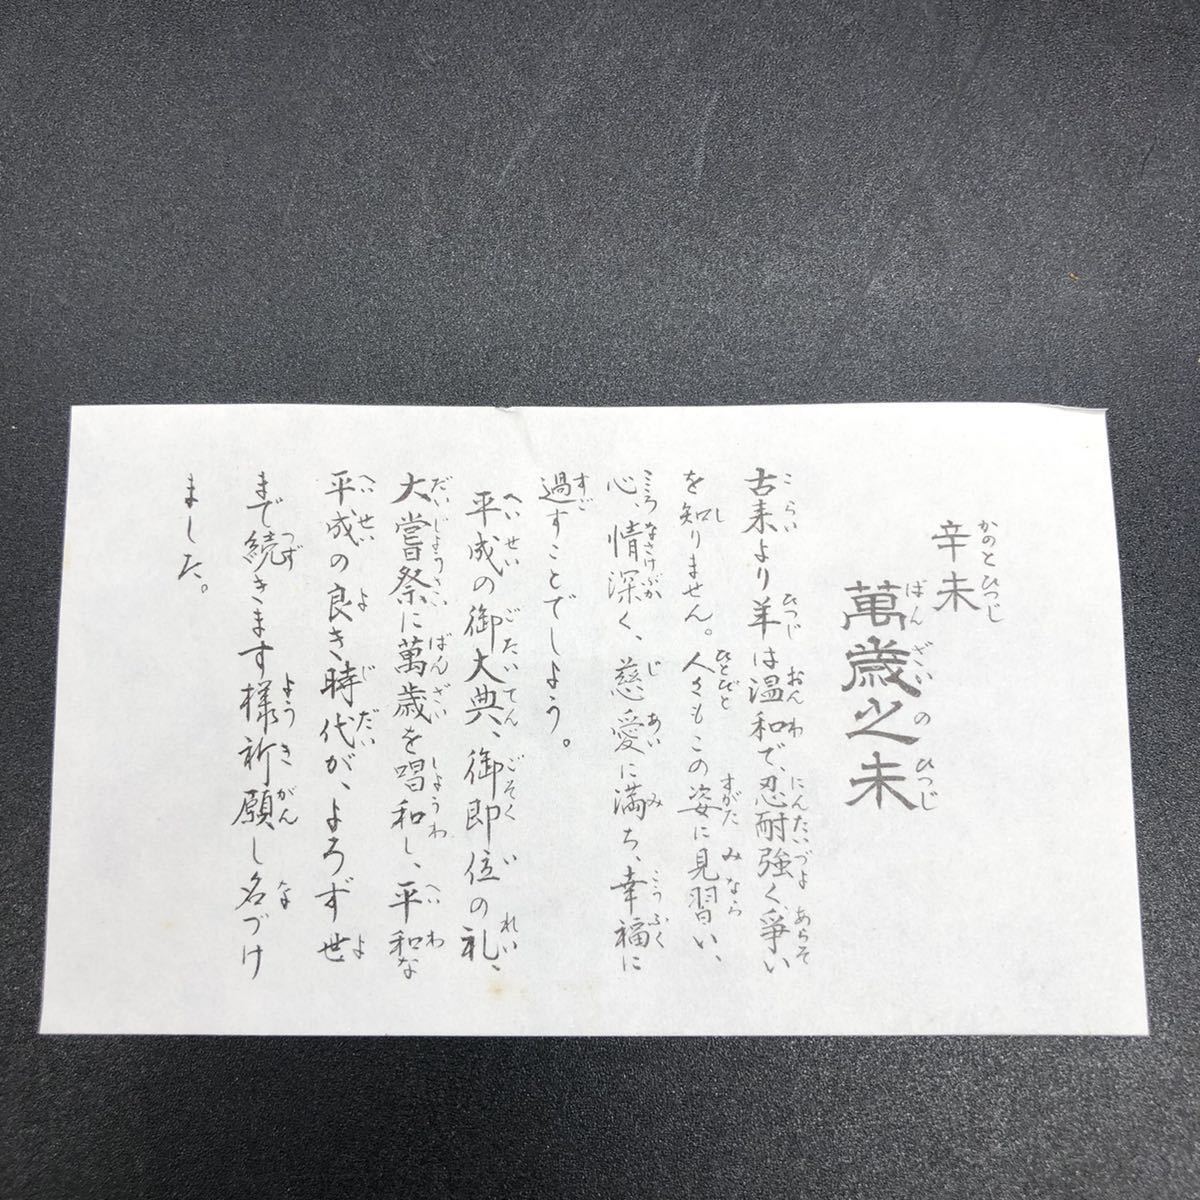 辛未
萬歳之未
古来より羊は温和で、忍耐強く爭い
を知りません。人々もこの姿に見習い、
心、情深く、慈愛に満ち、幸福に
過すことでしょう。
平成の御大典、御即位の礼、
大嘗祭に萬歳を唱和し、平和な
平成の良き時代が、よろず世
まで続きます様祈願し名づけ
ました。